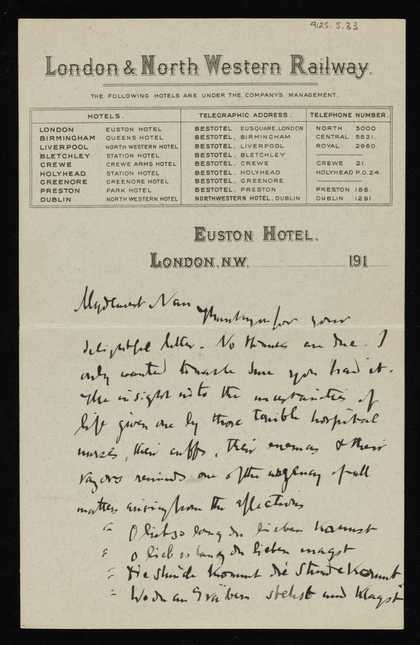 9125. S. 33
London & North Western Railway.
THE FOLLOWING HOTELS ARE UNDER THE COMPANY'S MANAGEMENT.
HOTELS. TELEGRAPHIC ADDRESS. TELEPHONE NUMBER.
LONDON EUSTON HOTEL BESTOTEL, EUSQUARE, LONDON NORTH 3000
BIRMINGHAM QUEENS HOTEL BESTOTEL, BIRMINGHAM CENTRAL 5821.
LIVERPOOL NORTH WESTERN HOTEL BESTOTEL, LIVERPOOL ROYAL 2960.
BLETCHLEY STATION HOTEL BESTOTEL, BLETCHLEY
CREWE CREWE ARMS HOTEL BESTOTEL, CREWE CREWE 21.
HOLYHEAD STATION HOTEL BESTOTEL, HOLYHEAD HOLYHEAD P.O. 24.
GREENORE GREENORE HOTEL BESTOTEL, GREENORE
PRESTON PARK HOTEL BESTOTEL, PRESTON PRESTON 186.
DUBLIN NORTH WESTERN HOTEL NORTHWESTERN HOTEL, DUBLIN DUBLIN 1291.
EUSTON HOTEL.
LONDON, N.W. 191
My dearest Nan
Thank you for your
delightful letter. No thanks are due. I
only wanted to make sure you had it.
The insight into the uncertainties of
life given one by those terrible hospital
nurses, their cuffs, their enemas & their
razors reminds one of the urgency of all
matters arising from the affections
" O lieb so lang du lieben kannst
" o lieb so lang du lieben magst
" Die Stunde kommt die Stunde kommt
" Wo du an Gräbern stehst und klagst